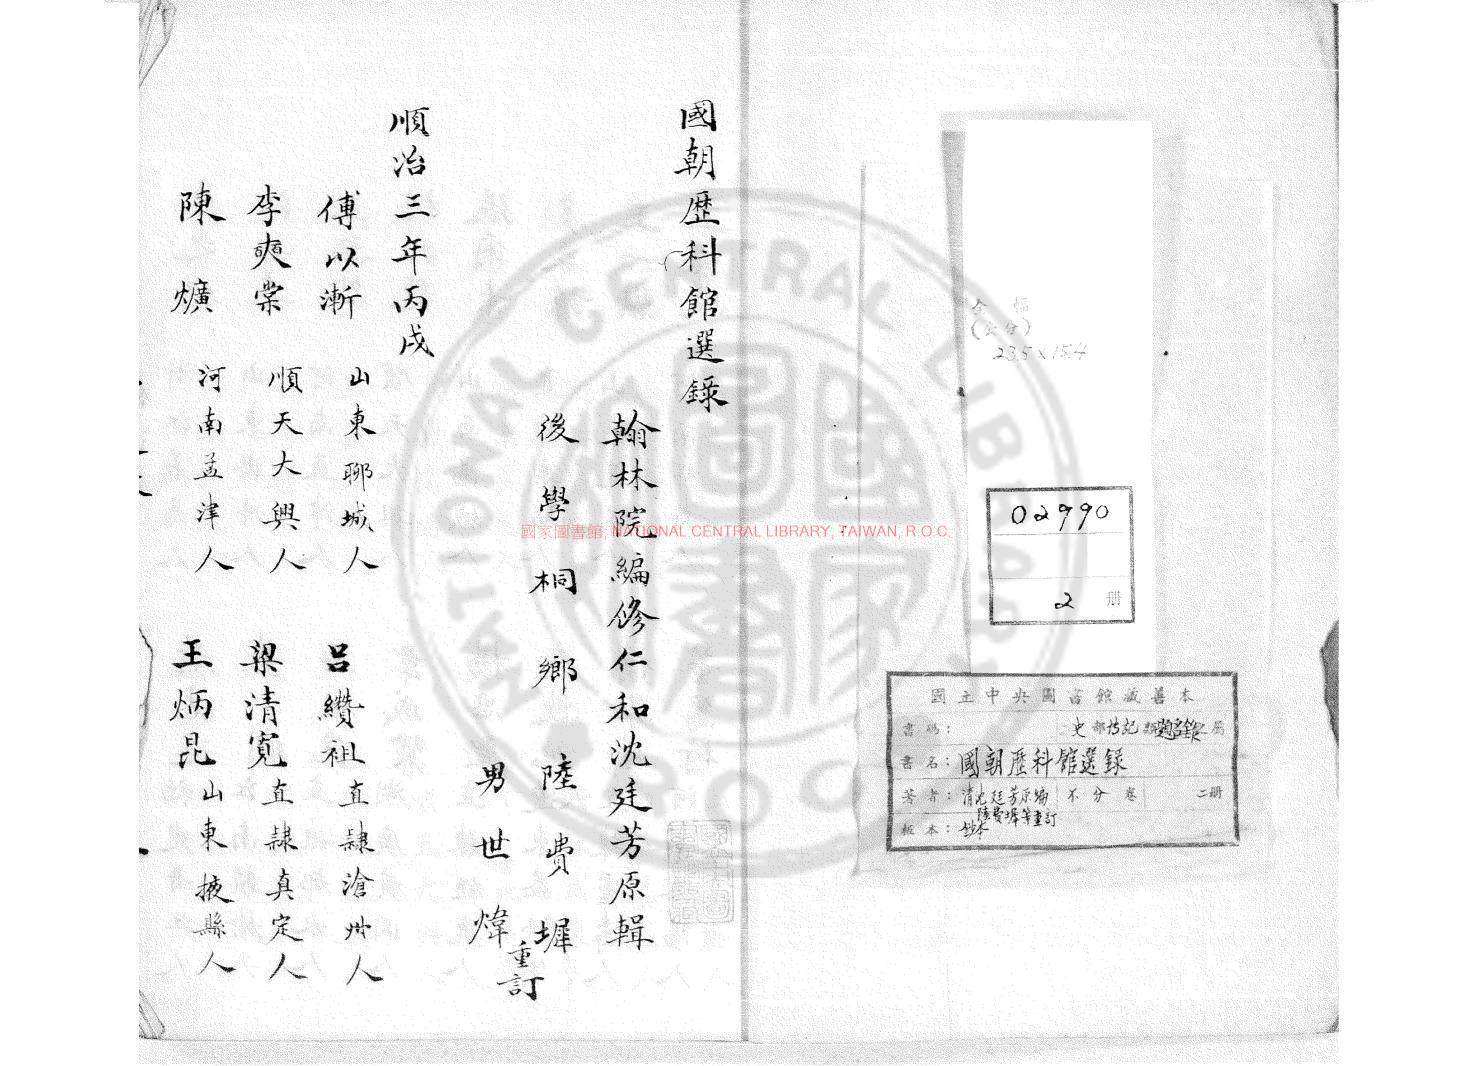 國朝歷科館選錄
翰林院編修仁和沈廷芳原輯
後學桐鄉陸費墀
男世煒
重訂
順治三年丙戌
傅以漸 山東聊城人
呂纘祖 直隷滄州人
李奭棠 順天大興人
梁清寬 直隷真定人
陳爌 河南孟津人
王炳昆 山東掖縣人
(公分)
23.5 x 15.4
02990
2 册
國立中央圖書館藏善本
書碼： 史部傳記類
書名：國朝歷科館選錄
著者：清沈廷芳原編 不分卷 二册
陸費墀等重訂
板本：鈔本
國家圖書館, NATIONAL CENTRAL LIBRARY, TAIWAN, R.O.C.
NATIONAL CENTRAL LIBRARY
R.O.C